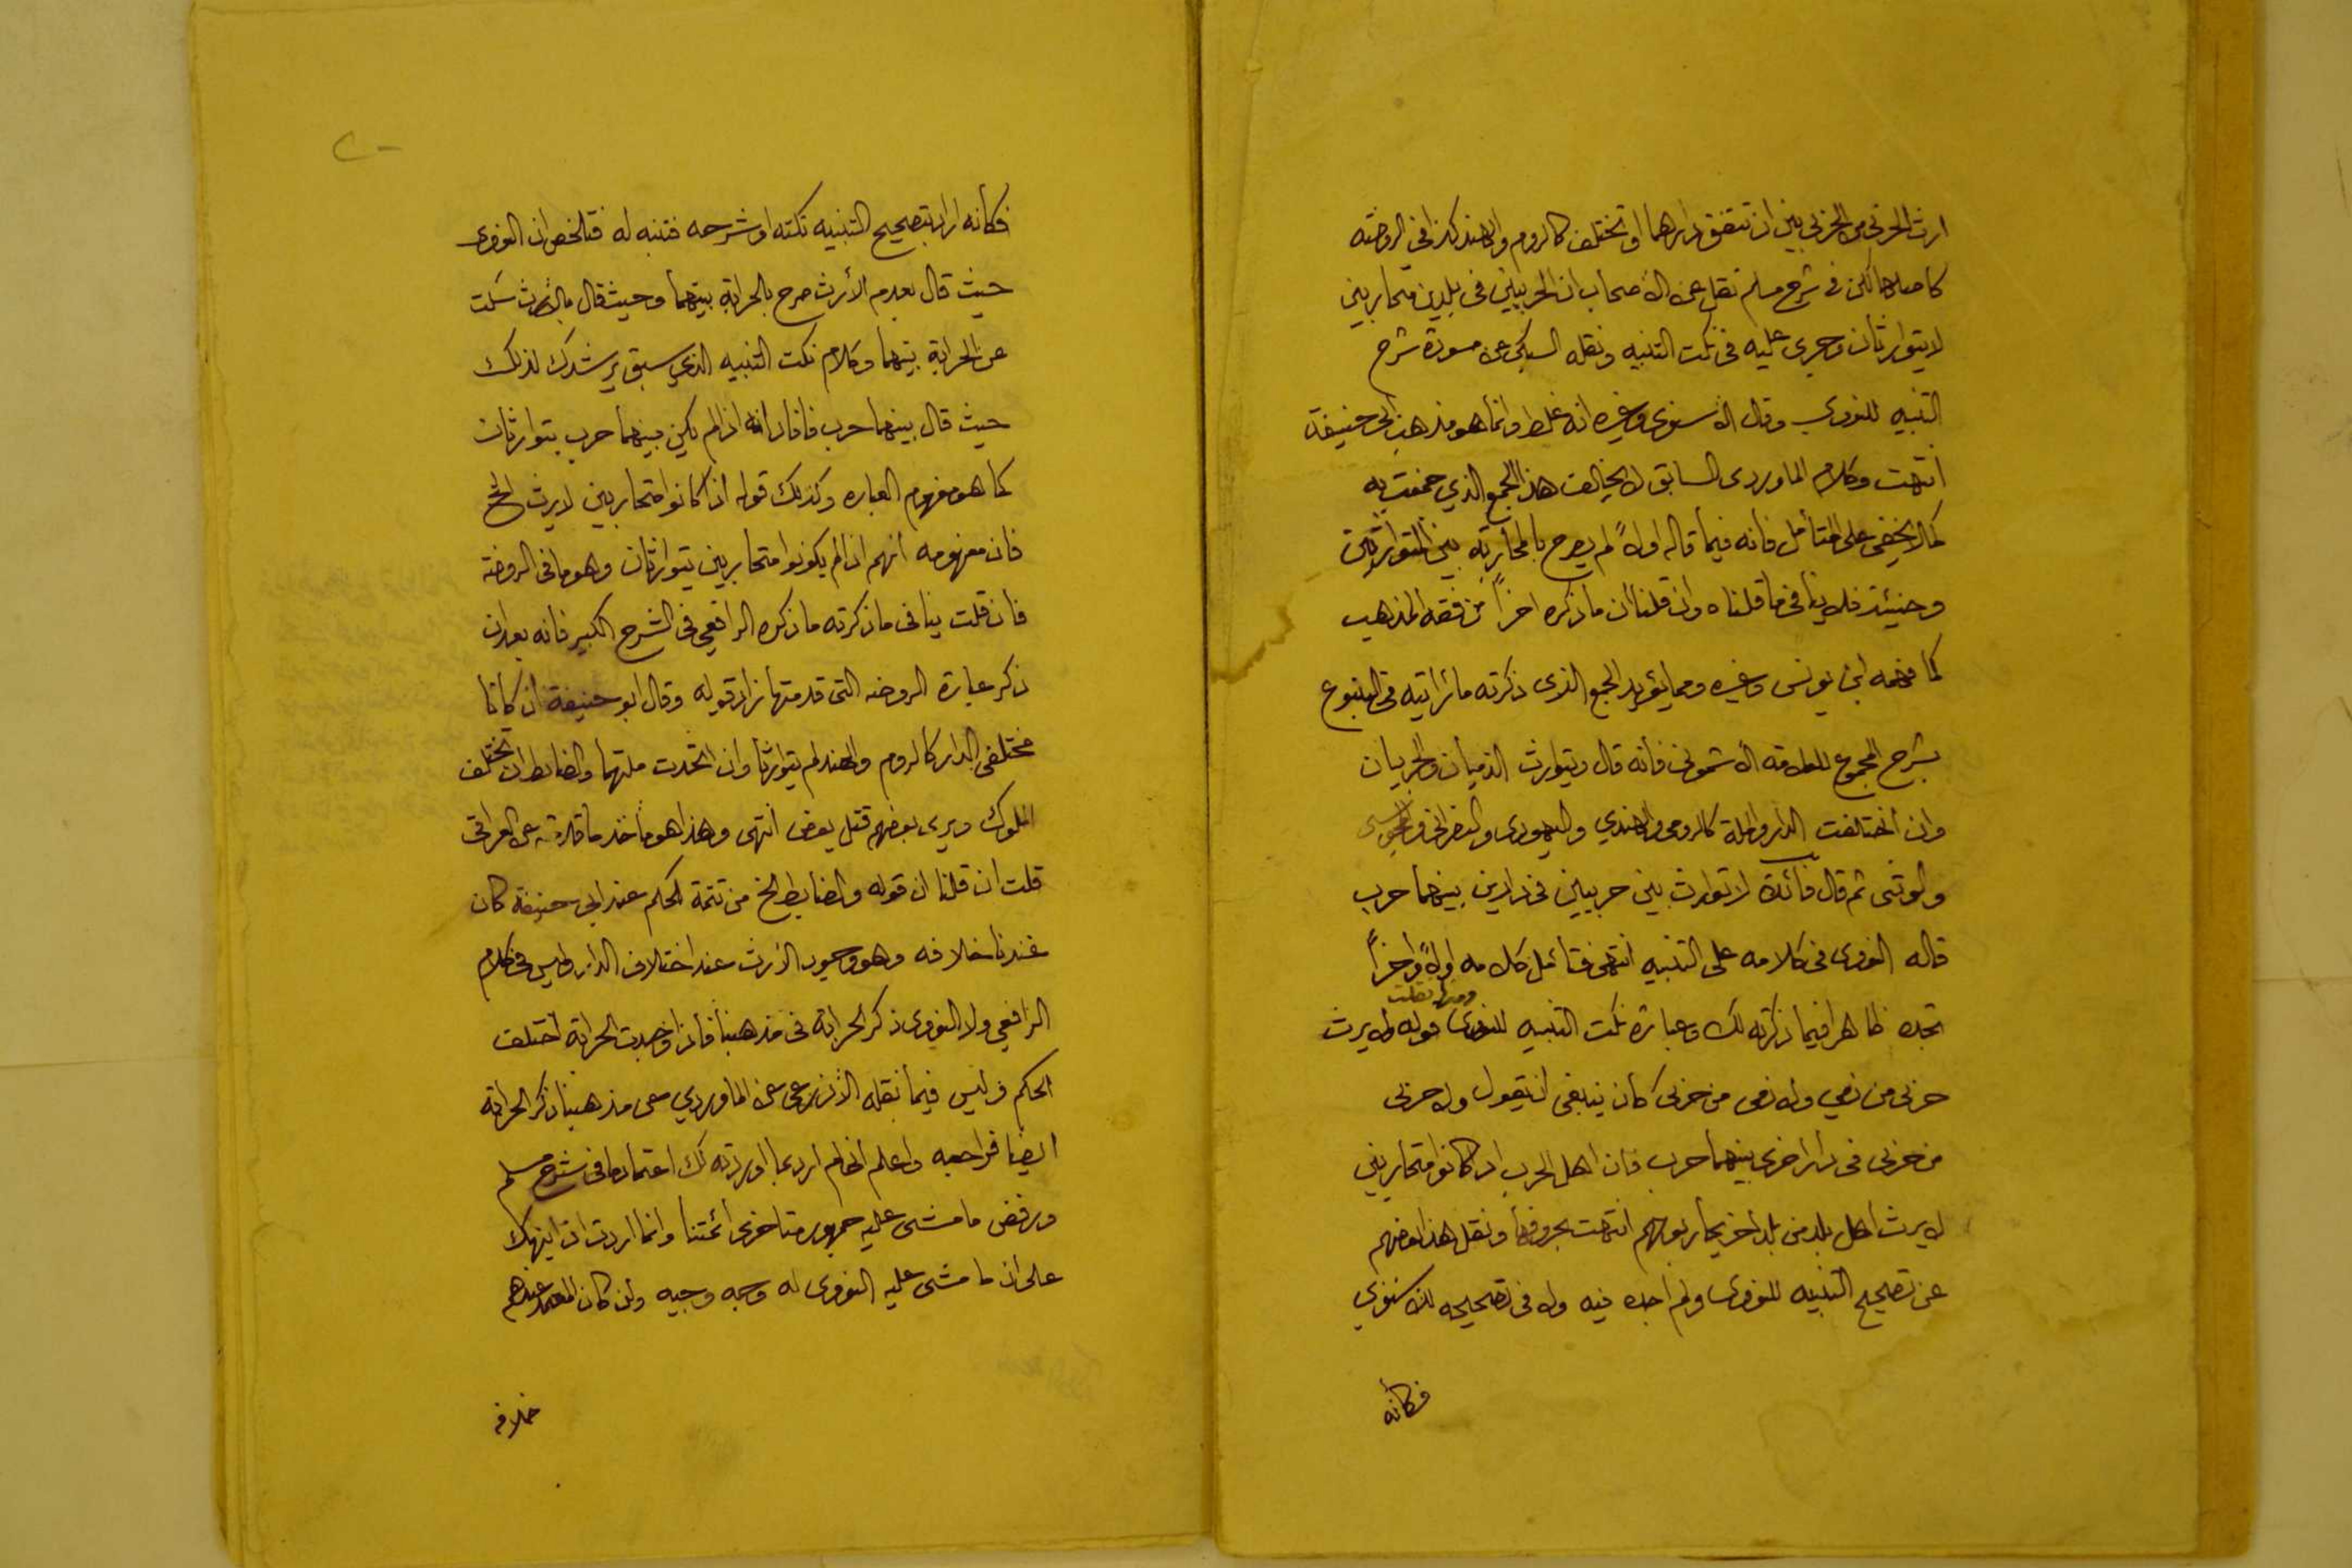 ارث الحربي من الحربي بين ان تتفق دارهما او تختلف كالروم والهند كذا في الروضة
كاصلها لكن في شرح مسلم نقل عن الأصحاب ان الحربيين في بلدين متحاربين
لا يتوارثان وجرى عليه في نكت التنبيه ونقله السبكي عن مسودة شرح
التنبيه للنووي وقال الأسنوي وغيره انه غلط وانما هو مذهب ابي حنيفة
انتهت وكلام الماوردي السابق لا يخالف هذا الجمع الذي جمعت به
كما لا يخفى على المتأمل فانه فيما قاله اولاً لم يصرح بالمحاربة بين المتوارثين
وحينئذ فلا ينافي ما قلناه وان قلنا ان ما ذكره اخراً من فقه المذهب
كما فهمه ابن يونس وغيره ومما يؤيد الجمع الذي ذكرته ما رأيته في الينبوع
بشرح المجموع للعلامة الأشموني فانه قال ويتوارث الذميان والحربيان
وان اختلفت الدار والملة كالرومي والهندي واليهودي والنصراني والمجوسي
والوثني ثم قال فائدة لا توارث بين حربيين في دارين بينهما حرب
قاله النووي في كلامه على التنبيه انتهى فتأمل كلامه اولاً واخراً
تجده ظاهرا فيما ذكرته لك وعبارة نكت التنبيه للنووي ومنها نقلت قوله ولا يرث
حربي من ذمي ولا ذمي من حربي كان ينبغي ان يقول ولا حربي
من حربي في دار اخرى بينهما حرب فان اهل الحرب اذا كانوا متحاربين
لا يرث اهل بلد من بلد اخر يحاربونهم انتهت بحروفها ونقل هذا بعضهم
عن تصحيح التنبيه للنووي ولم اجده فيه ولا في تصحيحه للاسنوي
فكأنه
فكأنه اراد بتصحيح التنبيه نكته او شرحه فتنبه له فتلخص ان النووي
حيث قال بعدم الأرث صرح بالحرابة بينهما وحيث قال بالأرث سكت
عن الحرابة بينهما وكلام نكت التنبيه الذي سبق يرشدك لذلك
حيث قال بينهما حرب فافاد انه اذا لم يكن بينهما حرب يتوارثان
كما هو مفهوم العباره وكذلك قوله اذا كانوا متحاربين لا يرث الخ
فان مفهومه انهم اذا لم يكونوا متحاربين يتوارثان وهو ما في الروضة
فان قلت ينافي ما ذكرته ما ذكره الرافعي في الشرح الكبير فانه بعد ان
ذكر عبارة الروضه التي قدمتها زاد قوله وقال ابو حنيفة ان كانا
مختلفي الدار كالروم والهند لم يتوارثا وان اتحدت ملتهما والضابط ان تختلف
الملوك ويرى بعضهم قتل بعض انتهى وهذا هو مأخذ ما قدمته عن العراقي
قلت ان قلنا ان قوله والضابط الخ من تتمة الحكم عند ابي حنيفة كان
عندنا خلافه وهو وجود الأرث عند اختلاف الدار وليس في كلام
الرافعي ولا النووي ذكر الحرابة في مذهبنا فاذا وجدت الحرابة اختلف
الحكم وليس فيما نقله الأذرعي عن الماوردي عن مذهبنا ذكر الحرابة
ايضا فراجعه واعلم اني لم ارد بما اوردته لك اعتماد ما في شرح مسلم
ورفض ما مشى عليه جمهور متأخري أئمتنا وانما اردت ان انبهك
على ان ما مشى عليه النووي له وجه وجيه وان كان المعتمد عندهم
خلافه